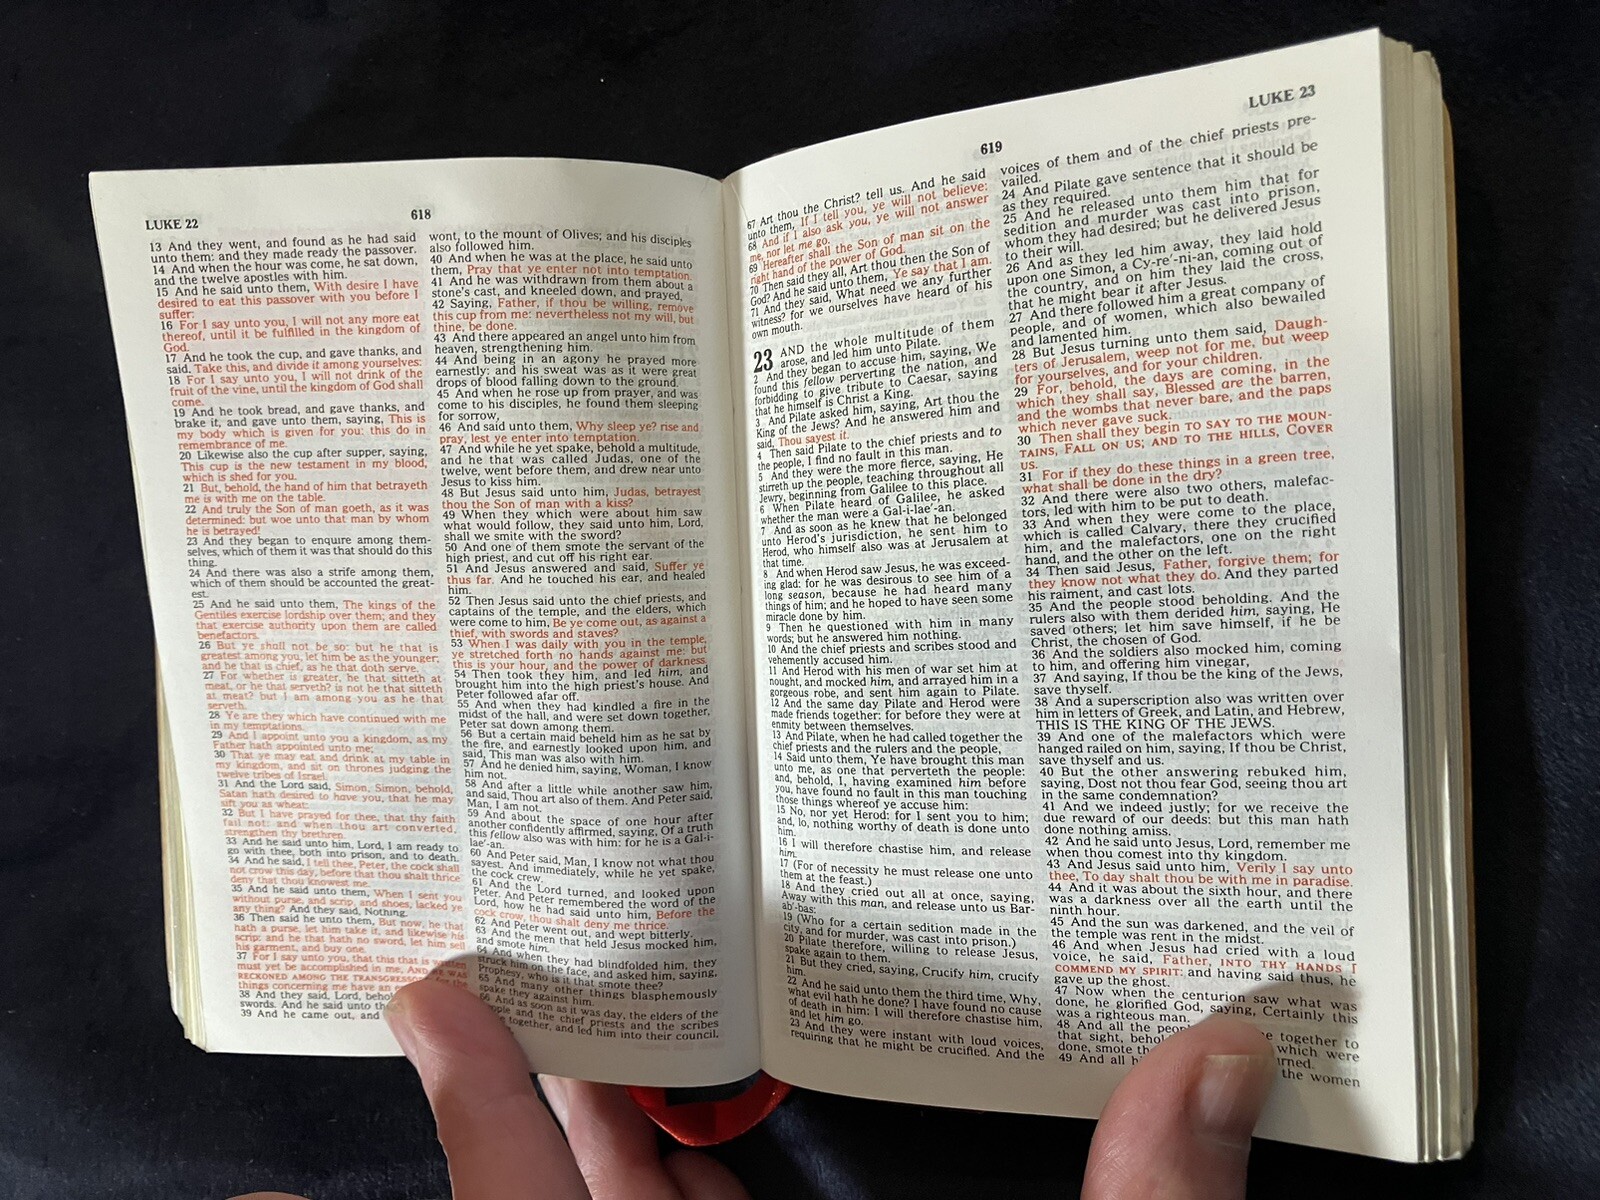 LUKE 22
618
13 And they went, and found as he had said
unto them: and they made ready the passover.
14 And when the hour was come, he sat down,
and the twelve apostles with him.
15 And he said unto them, With desire I have
desired to eat this passover with you before I
suffer:
16 For I say unto you, I will not any more eat
thereof, until it be fulfilled in the kingdom of
God.
17 And he took the cup, and gave thanks, and
said, Take this, and divide it among yourselves:
18 For I say unto you, I will not drink of the
fruit of the vine, until the kingdom of God shall
come.
19 And he took bread, and gave thanks, and
brake it, and gave unto them, saying, This is
my body which is given for you: this do in
remembrance of me.
20 Likewise also the cup after supper, saying,
This cup is the new testament in my blood,
which is shed for you.
21 But, behold, the hand of him that betrayeth
me is with me on the table.
22 And truly the Son of man goeth, as it was
determined: but woe unto that man by whom
he is betrayed!
23 And they began to enquire among them-
selves, which of them it was that should do this
thing.
24 And there was also a strife among them,
which of them should be accounted the great-
est.
25 And he said unto them, The kings of the
Gentiles exercise lordship over them; and they
that exercise authority upon them are called
benefactors.
26 But ye shall not be so: but he that is
greatest among you, let him be as the younger;
and he that is chief, as he that doth serve.
27 For whether is greater, he that sitteth at
meat, or he that serveth? is not he that sitteth
at meat? but I am among you as he that
serveth.
28 Ye are they which have continued with me
in my temptations.
29 And I appoint unto you a kingdom, as my
Father hath appointed unto me;
30 That ye may eat and drink at my table in
my kingdom, and sit on thrones judging the
twelve tribes of Israel.
31 And the Lord said, Simon, Simon, behold,
Satan hath desired to have you, that he may
sift you as wheat:
32 But I have prayed for thee, that thy faith
fail not: and when thou art converted,
strengthen thy brethren.
33 And he said unto him, Lord, I am ready to
go with thee, both into prison, and to death.
34 And he said, I tell thee, Peter, the cock shall
not crow this day, before that thou shalt thrice
deny that thou knowest me.
35 And he said unto them, When I sent you
without purse, and scrip, and shoes, lacked ye
any thing? And they said, Nothing.
36 Then said he unto them, But now, he that
hath a purse, let him take it, and likewise his
scrip: and he that hath no sword, let him sell
his garment, and buy one.
37 For I say unto you, that this that is written
must yet be accomplished in me, AND HE WAS
RECKONED AMONG THE TRANSGRESSO for the
things concerning me have an
38 And they said, Lord, behol
swords. And he said unto th
39 And he came out, and
wont, to the mount of Olives; and his disciples
also followed him.
40 And when he was at the place, he said unto
them, Pray that ye enter not into temptation.
41 And he was withdrawn from them about a
stone's cast, and kneeled down, and prayed,
42 Saying, Father, if thou be willing, remove
this cup from me: nevertheless not my will, but
thine, be done.
43 And there appeared an angel unto him from
heaven, strengthening him.
44 And being in an agony he prayed more
earnestly: and his sweat was as it were great
drops of blood falling down to the ground.
45 And when he rose up from prayer, and was
come to his disciples, he found them sleeping
for sorrow,
46 And said unto them, Why sleep ye? rise and
pray, lest ye enter into temptation.
47 And while he yet spake, behold a multitude,
and he that was called Judas, one of the
twelve, went before them, and drew near unto
Jesus to kiss him.
48 But Jesus said unto him, Judas, betrayest
thou the Son of man with a kiss?
49 When they which were about him saw
what would follow, they said unto him, Lord,
shall we smite with the sword?
50 And one of them smote the servant of the
high priest, and cut off his right ear.
51 And Jesus answered and said, Suffer ye
thus far. And he touched his ear, and healed
him.
52 Then Jesus said unto the chief priests, and
captains of the temple, and the elders, which
were come to him, Be ye come out, as against a
thief, with swords and staves?
53 When I was daily with you in the temple,
ye stretched forth no hands against me: but
this is your hour, and the power of darkness.
54 Then took they him, and led him, and
brought him into the high priest's house. And
Peter followed afar off.
55 And when they had kindled a fire in the
midst of the hall, and were set down together,
Peter sat down among them.
56 But a certain maid beheld him as he sat by
the fire, and earnestly looked upon him, and
said, This man was also with him.
57 And he denied him, saying, Woman, I know
him not.
58 And after a little while another saw him,
and said, Thou art also of them. And Peter said,
Man, I am not.
59 And about the space of one hour after
another confidently affirmed, saying, Of a truth
this fellow also was with him: for he is a Gal-i-
lae'-an.
60 And Peter said, Man, I know not what thou
sayest. And immediately, while he yet spake,
the cock crew.
61 And the Lord turned, and looked upon
Peter. And Peter remembered the word of the
Lord, how he had said unto him, Before the
cock crow, thou shalt deny me thrice.
62 And Peter went out, and wept bitterly.
63 And the men that held Jesus mocked him,
and smote him.
64 And when they had blindfolded him, they
struck him on the face, and asked him, saying,
Prophesy, who is it that smote thee?
65 And many other things blasphemously
spake they against him.
66 And as soon as it was day, the elders of the
people and the chief priests and the scribes
together, and led him into their council,
619
LUKE 23
67 Art thou the Christ? tell us. And he said
unto them, If I tell you, ye will not believe:
68 And if I also ask you, ye will not answer
me, nor let me go.
69 Hereafter shall the Son of man sit on the
right hand of the power of God.
70 Then said they all, Art thou then the Son of
God? And he said unto them, Ye say that I am.
71 And they said, What need we any further
witness? for we ourselves have heard of his
own mouth.
23 AND the whole multitude of them
arose, and led him unto Pilate.
2 And they began to accuse him, saying, We
found this fellow perverting the nation, and
forbidding to give tribute to Caesar, saying
that he himself is Christ a King.
3 And Pilate asked him, saying, Art thou the
King of the Jews? And he answered him and
said, Thou sayest it.
4 Then said Pilate to the chief priests and to
the people, I find no fault in this man.
5 And they were the more fierce, saying, He
stirreth up the people, teaching throughout all
Jewry, beginning from Galilee to this place.
6 When Pilate heard of Galilee, he asked
whether the man were a Gal-i-lae'-an.
7 And as soon as he knew that he belonged
unto Herod's jurisdiction, he sent him to
Herod, who himself also was at Jerusalem at
that time.
8 And when Herod saw Jesus, he was exceed-
ing glad: for he was desirous to see him of a
long season, because he had heard many
things of him; and he hoped to have seen some
miracle done by him.
9 Then he questioned with him in many
words; but he answered him nothing.
10 And the chief priests and scribes stood and
vehemently accused him.
11 And Herod with his men of war set him at
nought, and mocked him, and arrayed him in a
gorgeous robe, and sent him again to Pilate.
12 And the same day Pilate and Herod were
made friends together: for before they were at
enmity between themselves.
13 And Pilate, when he had called together the
chief priests and the rulers and the people,
14 Said unto them, Ye have brought this man
unto me, as one that perverteth the people:
and, behold, I, having examined him before
you, have found no fault in this man touching
those things whereof ye accuse him:
15 No, nor yet Herod: for I sent you to him;
and, lo, nothing worthy of death is done unto
him.
16 I will therefore chastise him, and release
him.
17 (For of necessity he must release one unto
them at the feast.)
18 And they cried out all at once, saying,
Away with this man, and release unto us Bar-
ab'-bas:
19 (Who for a certain sedition made in the
city, and for murder, was cast into prison.)
20 Pilate therefore, willing to release Jesus,
spake again to them.
21 But they cried, saying, Crucify him, crucify
him.
22 And he said unto them the third time, Why,
what evil hath he done? I have found no cause
of death in him: I will therefore chastise him,
and let him go.
23 And they were instant with loud voices,
requiring that he might be crucified. And the
voices of them and of the chief priests pre-
vailed.
24 And Pilate gave sentence that it should be
as they required.
25 And he released unto them him that for
sedition and murder was cast into prison,
whom they had desired; but he delivered Jesus
to their will.
26 And as they led him away, they laid hold
upon one Simon, a Cy-re'-ni-an, coming out of
the country, and on him they laid the cross,
that he might bear it after Jesus.
27 And there followed him a great company of
people, and of women, which also bewailed
and lamented him.
28 But Jesus turning unto them said, Daugh-
ters of Jerusalem, weep not for me, but weep
for yourselves, and for your children.
29 For, behold, the days are coming, in the
which they shall say, Blessed are the barren,
and the wombs that never bare, and the paps
which never gave suck.
30 Then shall they begin TO SAY TO THE MOUN-
TAINS, FALL ON US; AND TO THE HILLS, COVER
US.
31 For if they do these things in a green tree,
what shall be done in the dry?
32 And there were also two others, malefac-
tors, led with him to be put to death.
33 And when they were come to the place,
which is called Calvary, there they crucified
him, and the malefactors, one on the right
hand, and the other on the left.
34 Then said Jesus, Father, forgive them; for
they know not what they do. And they parted
his raiment, and cast lots.
35 And the people stood beholding. And the
rulers also with them derided him, saying, He
saved others; let him save himself, if he be
Christ, the chosen of God.
36 And the soldiers also mocked him, coming
to him, and offering him vinegar,
37 And saying, If thou be the king of the Jews,
save thyself.
38 And a superscription also was written over
him in letters of Greek, and Latin, and Hebrew,
THIS IS THE KING OF THE JEWS.
39 And one of the malefactors which were
hanged railed on him, saying, If thou be Christ,
save thyself and us.
40 But the other answering rebuked him,
saying, Dost not thou fear God, seeing thou art
in the same condemnation?
41 And we indeed justly; for we receive the
due reward of our deeds: but this man hath
done nothing amiss.
42 And he said unto Jesus, Lord, remember me
when thou comest into thy kingdom.
43 And Jesus said unto him, Verily I say unto
thee, To day shalt thou be with me in paradise.
44 And it was about the sixth hour, and there
was a darkness over all the earth until the
ninth hour.
45 And the sun was darkened, and the veil of
the temple was rent in the midst.
46 And when Jesus had cried with a loud
voice, he said, Father, INTO THY HANDS I
COMMEND MY SPIRIT: and having said thus, he
gave up the ghost.
47 Now when the centurion saw what was
done, he glorified God, saying, Certainly this
was a righteous man.
48 And all the peop together to
that sight, behol which were
done, smote th urned.
49 And all hi the women